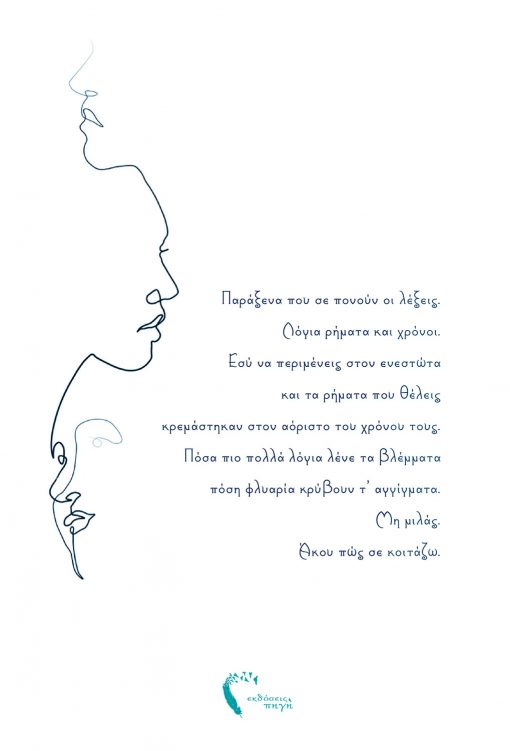 Παράξενα που σε πονούν οι λέξεις.
Λόγια ρήματα και χρόνοι.
Εσύ να περιμένεις στον ενεστώτα
και τα ρήματα που θέλεις
κρεμάστηκαν στον αόριστο του χρόνου τους.
Πόσα πιο πολλά λόγια λένε τα βλέμματα
πόση φλυαρία κρύβουν τ’ αγγίγματα.
Μη μιλάς.
Άκου πώς σε κοιτάζω.
εκδόσεις
πηγή